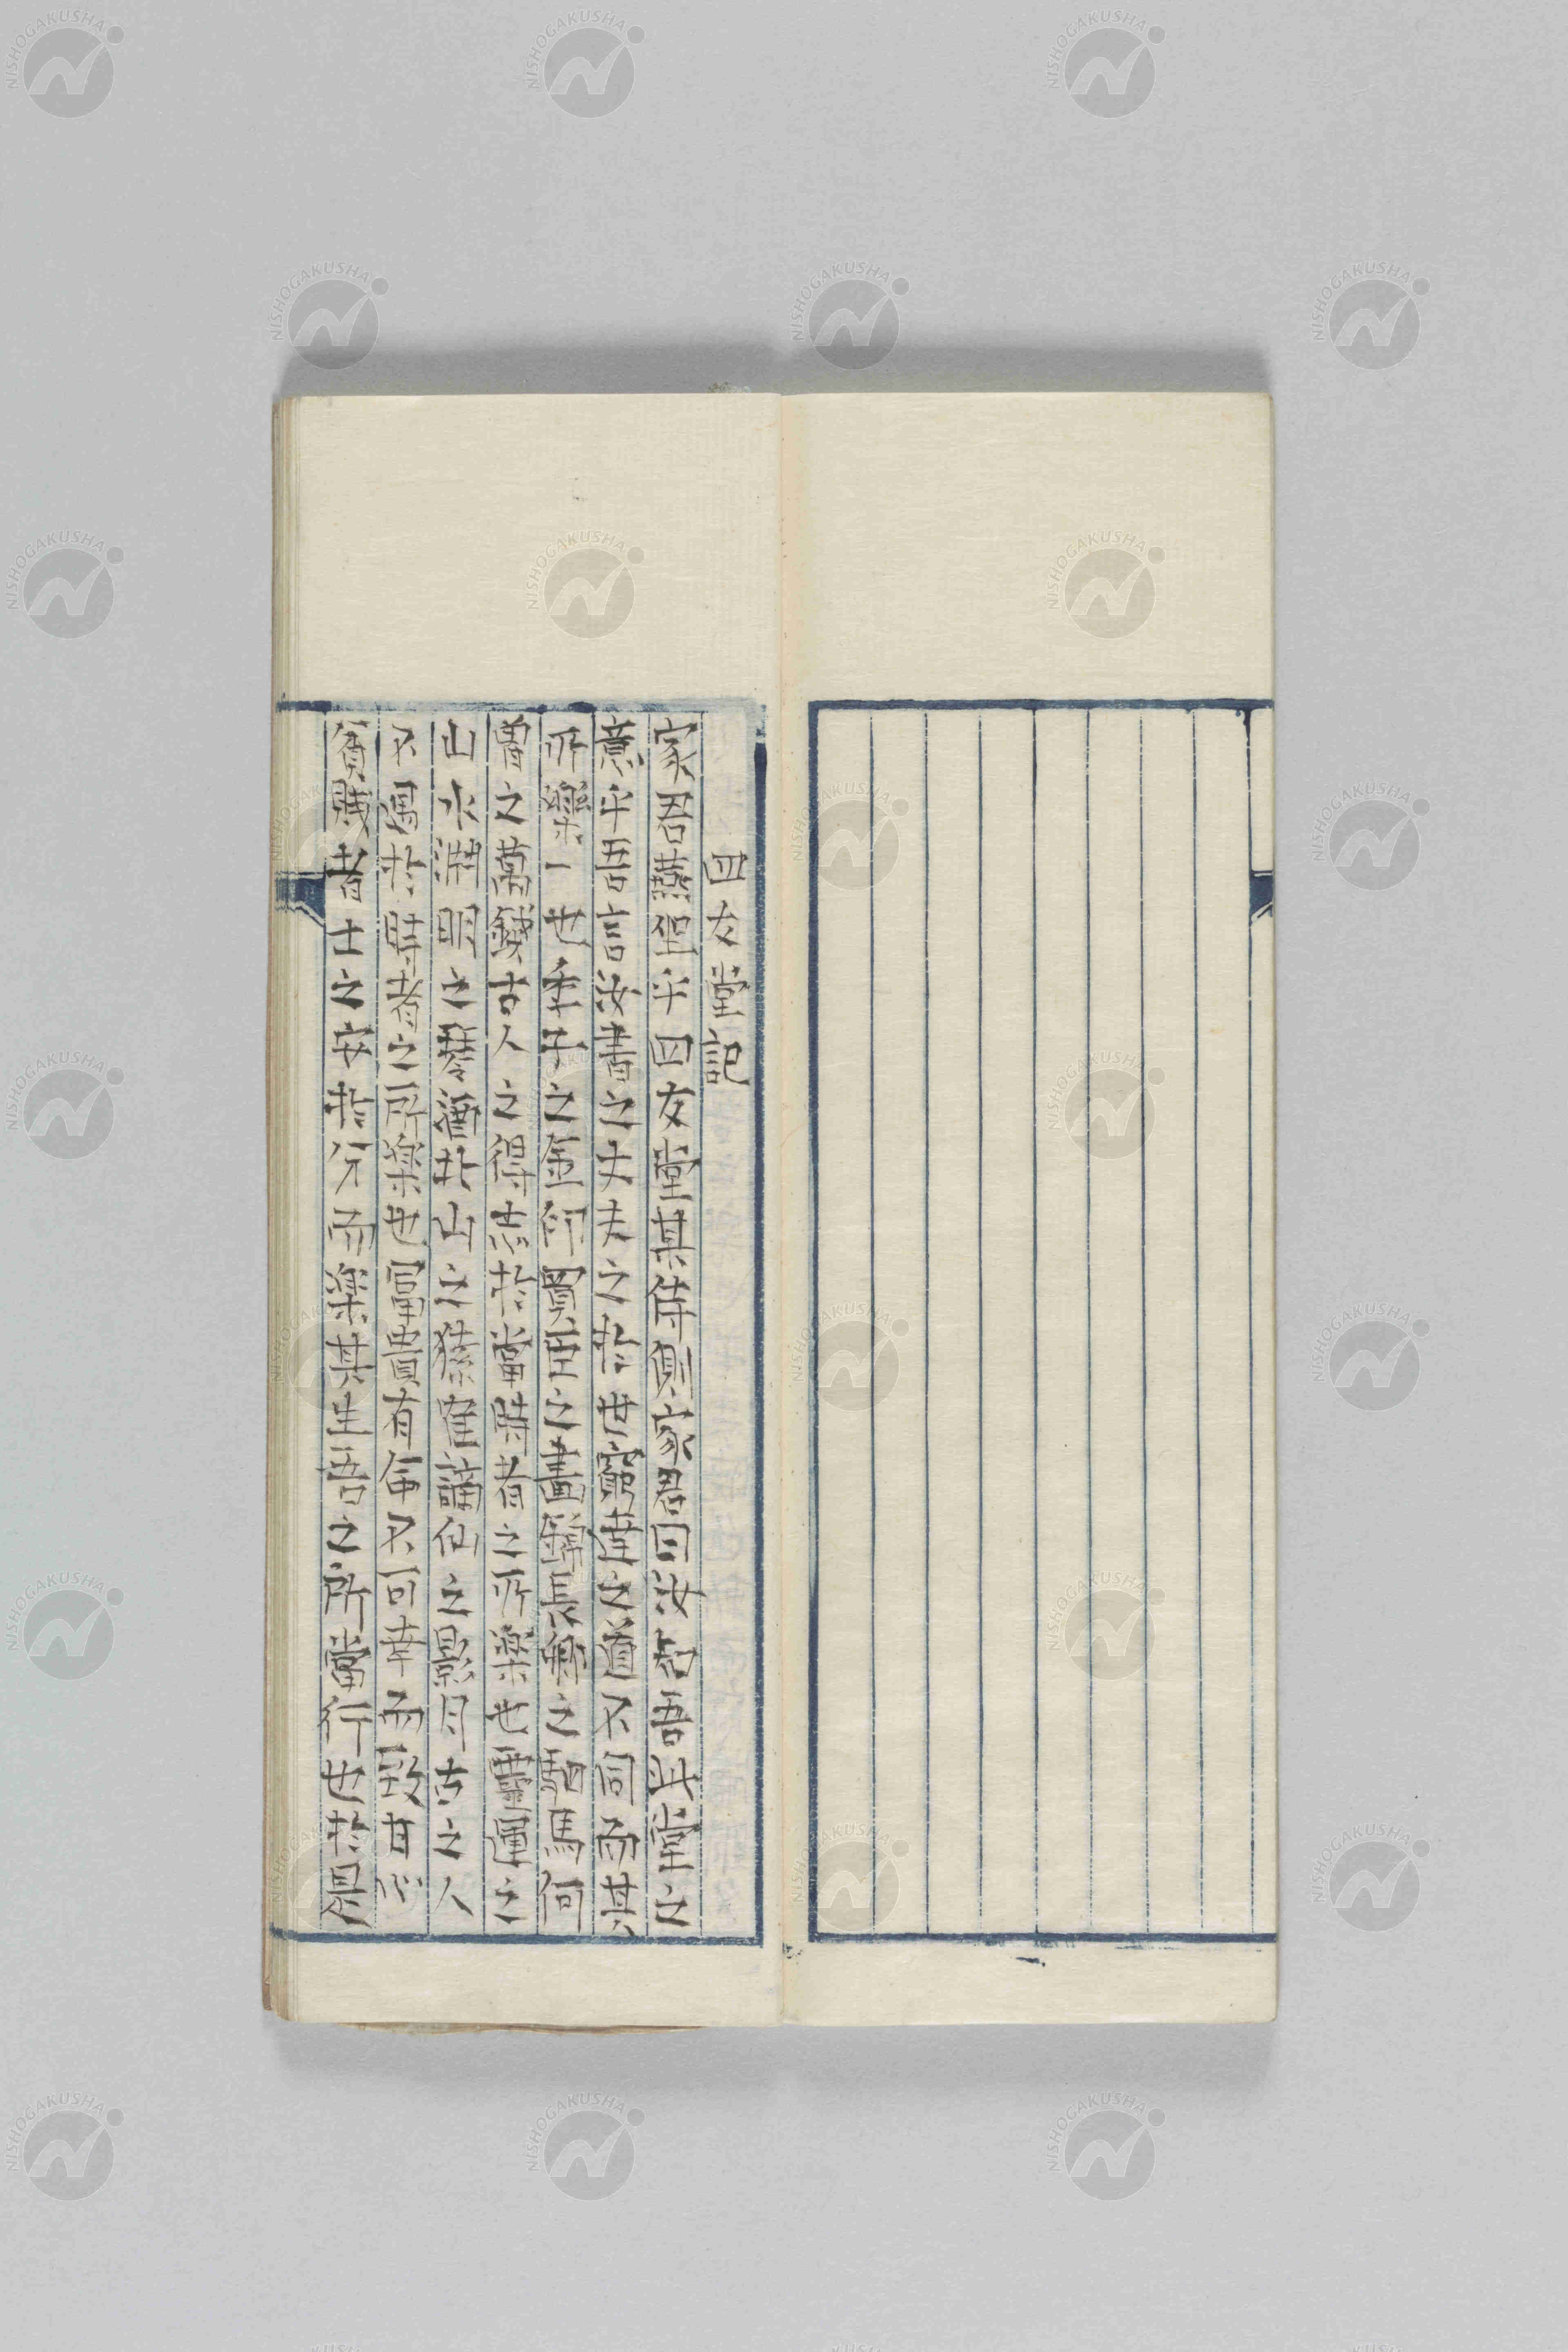 四友堂記
家君燕坐乎四友堂某侍側家君曰汝知吾此堂之
意乎吾言汝書之丈夫之於世窮達之道不同而其
所樂一也季子之金印買臣之畫錦長卿之駟馬何
曽之萬錢古人之得志於當時者之所樂也靈運之
山水淵明之琴酒北山之猿隺謫仙之影月古之人
不遇於時者之所樂也冨貴有命不可幸而致甘心
貧賎者士之安於分而樂其生吾之所當行也於是
NISHOGAKUSHA